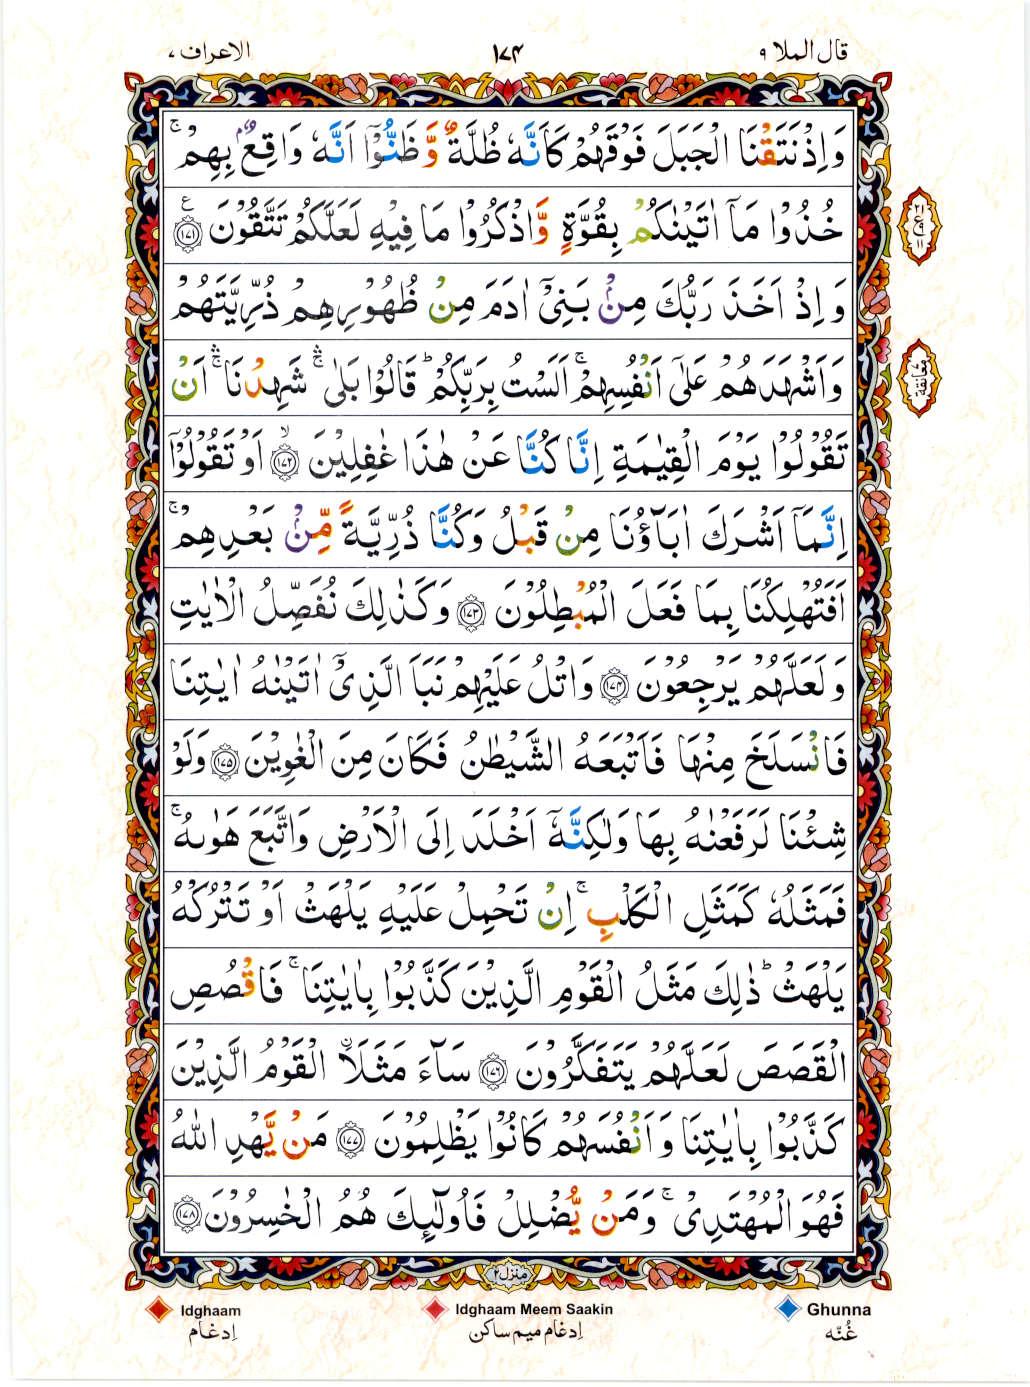 قال الملا ۹
۱۷۴
الاعراف ۷
وَاِذْ نَتَقْنَا الْجَبَلَ فَوْقَهُمْ كَاَنَّهٗ ظُلَّةٌ وَّظَنُّوْۤا اَنَّهٗ وَاقِعٌۢ بِهِمْ ۚ
خُذُوْا مَاۤ اٰتَيْنٰكُمْ بِقُوَّةٍ وَّاذْكُرُوْا مَا فِيْهِ لَعَلَّكُمْ تَتَّقُوْنَ ﴿۱۷۱﴾ ع
وَاِذْ اَخَذَ رَبُّكَ مِنْۢ بَنِىْۤ اٰدَمَ مِنْ ظُهُوْرِهِمْ ذُرِّيَّتَهُمْ
وَاَشْهَدَهُمْ عَلٰٓى اَنْفُسِهِمْ ۚ اَلَسْتُ بِرَبِّكُمْ ؕ قَالُوْا بَلٰى ۛۚ شَهِدْنَا ۛۚ اَنْ
تَقُوْلُوْا يَوْمَ الْقِيٰمَةِ اِنَّا كُنَّا عَنْ هٰذَا غٰفِلِيْنَ ۙ﴿۱۷۲﴾ اَوْ تَقُوْلُوْۤا
اِنَّمَاۤ اَشْرَكَ اٰبَآؤُنَا مِنْ قَبْلُ وَكُنَّا ذُرِّيَّةً مِّنْۢ بَعْدِهِمْ ۚ
اَفَتُهْلِكُنَا بِمَا فَعَلَ الْمُبْطِلُوْنَ ﴿۱۷۳﴾ وَكَذٰلِكَ نُفَصِّلُ الْاٰيٰتِ
وَلَعَلَّهُمْ يَرْجِعُوْنَ ﴿۱۷۴﴾ وَاتْلُ عَلَيْهِمْ نَبَاَ الَّذِىْۤ اٰتَيْنٰهُ اٰيٰتِنَا
فَانْسَلَخَ مِنْهَا فَاَتْبَعَهُ الشَّيْطٰنُ فَكَانَ مِنَ الْغٰوِيْنَ ﴿۱۷۵﴾ وَلَوْ
شِئْنَا لَرَفَعْنٰهُ بِهَا وَلٰكِنَّهٗۤ اَخْلَدَ اِلَى الْاَرْضِ وَاتَّبَعَ هَوٰىهُ ۚ
فَمَثَلُهٗ كَمَثَلِ الْكَلْبِ ۚ اِنْ تَحْمِلْ عَلَيْهِ يَلْهَثْ اَوْ تَتْرُكْهُ
يَلْهَثْ ؕ ذٰلِكَ مَثَلُ الْقَوْمِ الَّذِيْنَ كَذَّبُوْا بِاٰيٰتِنَا ۚ فَاقْصُصِ
الْقَصَصَ لَعَلَّهُمْ يَتَفَكَّرُوْنَ ﴿۱۷۶﴾ سَآءَ مَثَلَا ۨ الْقَوْمُ الَّذِيْنَ
كَذَّبُوْا بِاٰيٰتِنَا وَاَنْفُسَهُمْ كَانُوْا يَظْلِمُوْنَ ﴿۱۷۷﴾ مَنْ يَّهْدِ اللّٰهُ
فَهُوَ الْمُهْتَدِىْ ۚ وَمَنْ يُّضْلِلْ فَاُولٰٓئِكَ هُمُ الْخٰسِرُوْنَ ﴿۱۷۸﴾
منزل ۲
Idghaam
Idghaam Meem Saakin
Ghunna
اِدغَام
اِدغَام میم ساکن
غُنّه